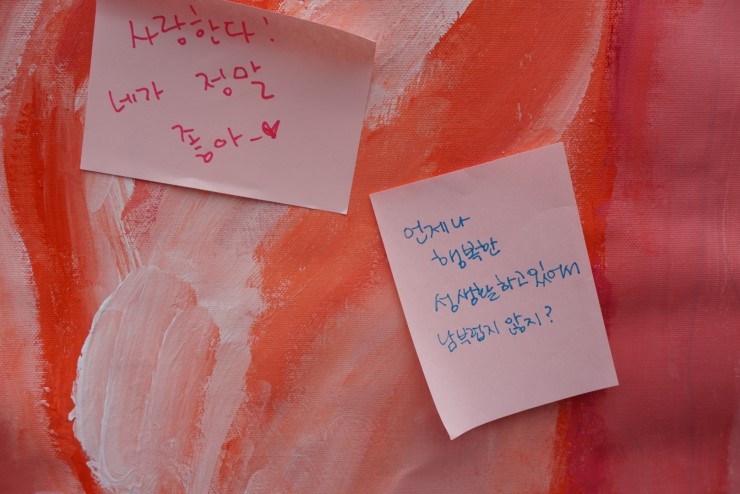 사랑한다!
네가 정말
좋아~♥
언제나
행복한
성생활하고있어서
남부럽지 않지?